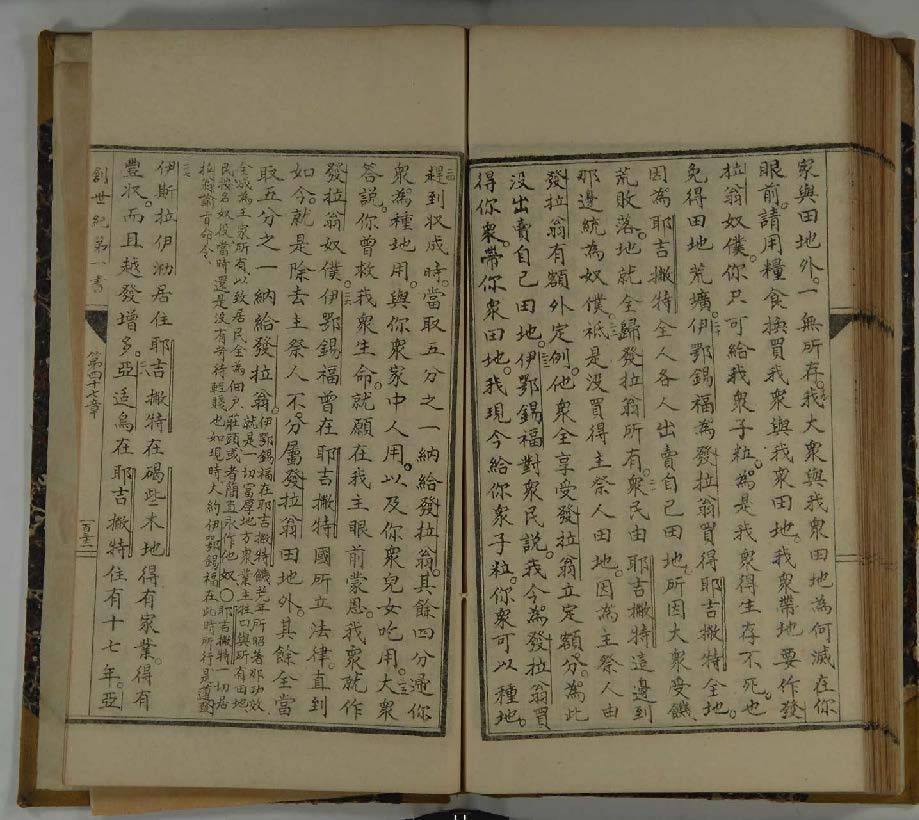 家與田地外。一無所存。我大衆與我衆田地為何滅在你
眼前。請用糧食換買我衆與我衆田地。我衆帶地要作發
拉翁奴僕。你只可給我衆子粒。為是我衆得生存不死。也
免得田地荒壙。伊鄂錫福為發拉翁買得耶吉撇特全地
因為耶吉撇特全人各人出賣自己田地。所因大衆受饑
荒敗落。地就全歸發拉翁所有。衆民由耶吉撇特這邊到
那邊統為奴僕。祗是没買得主祭人田地。因為主祭人由
發拉翁有額外定例。他衆全享受發拉翁立定額分。為此
没出賣自己田地。伊鄂錫福對衆民說。我今為發拉翁買
得你衆。帶你衆田地。我現今給你衆子粒。你衆可以種地。
趕到収成時。當取五分之一納給發拉翁。其餘四分適你
衆為種地用。與你衆家中人用。以及你衆兒女吃用。大衆
答說。你曾救我衆生命。就願在我主眼前蒙恩。我衆就作
發拉翁奴僕。伊鄂錫福曾在耶吉撇特國所立法律。直到
如今。就是除去主祭人不分屬發拉翁田地外。其餘全當
取五分之一納給發拉翁。伊鄂錫福在耶吉撇特饑荒年所昭著那功效
就是一切富厚地方衆業主班口與所有田地
全城為主家所有以致居民全為佃戶莊頭或者簡直永作他奴〇耶吉撇特一切居
民按名奴役當時還是没有苛待輕賤也如現時大約伊鄂錫福在此時所行是遵
拉翁諭旨命令
伊斯拉伊泐居住耶吉撇特在碣些木地得有家業。得有
豐収。而且越發增多。亞适烏在耶吉撇特住有十七年。亞
創世紀第一書
第四十七章